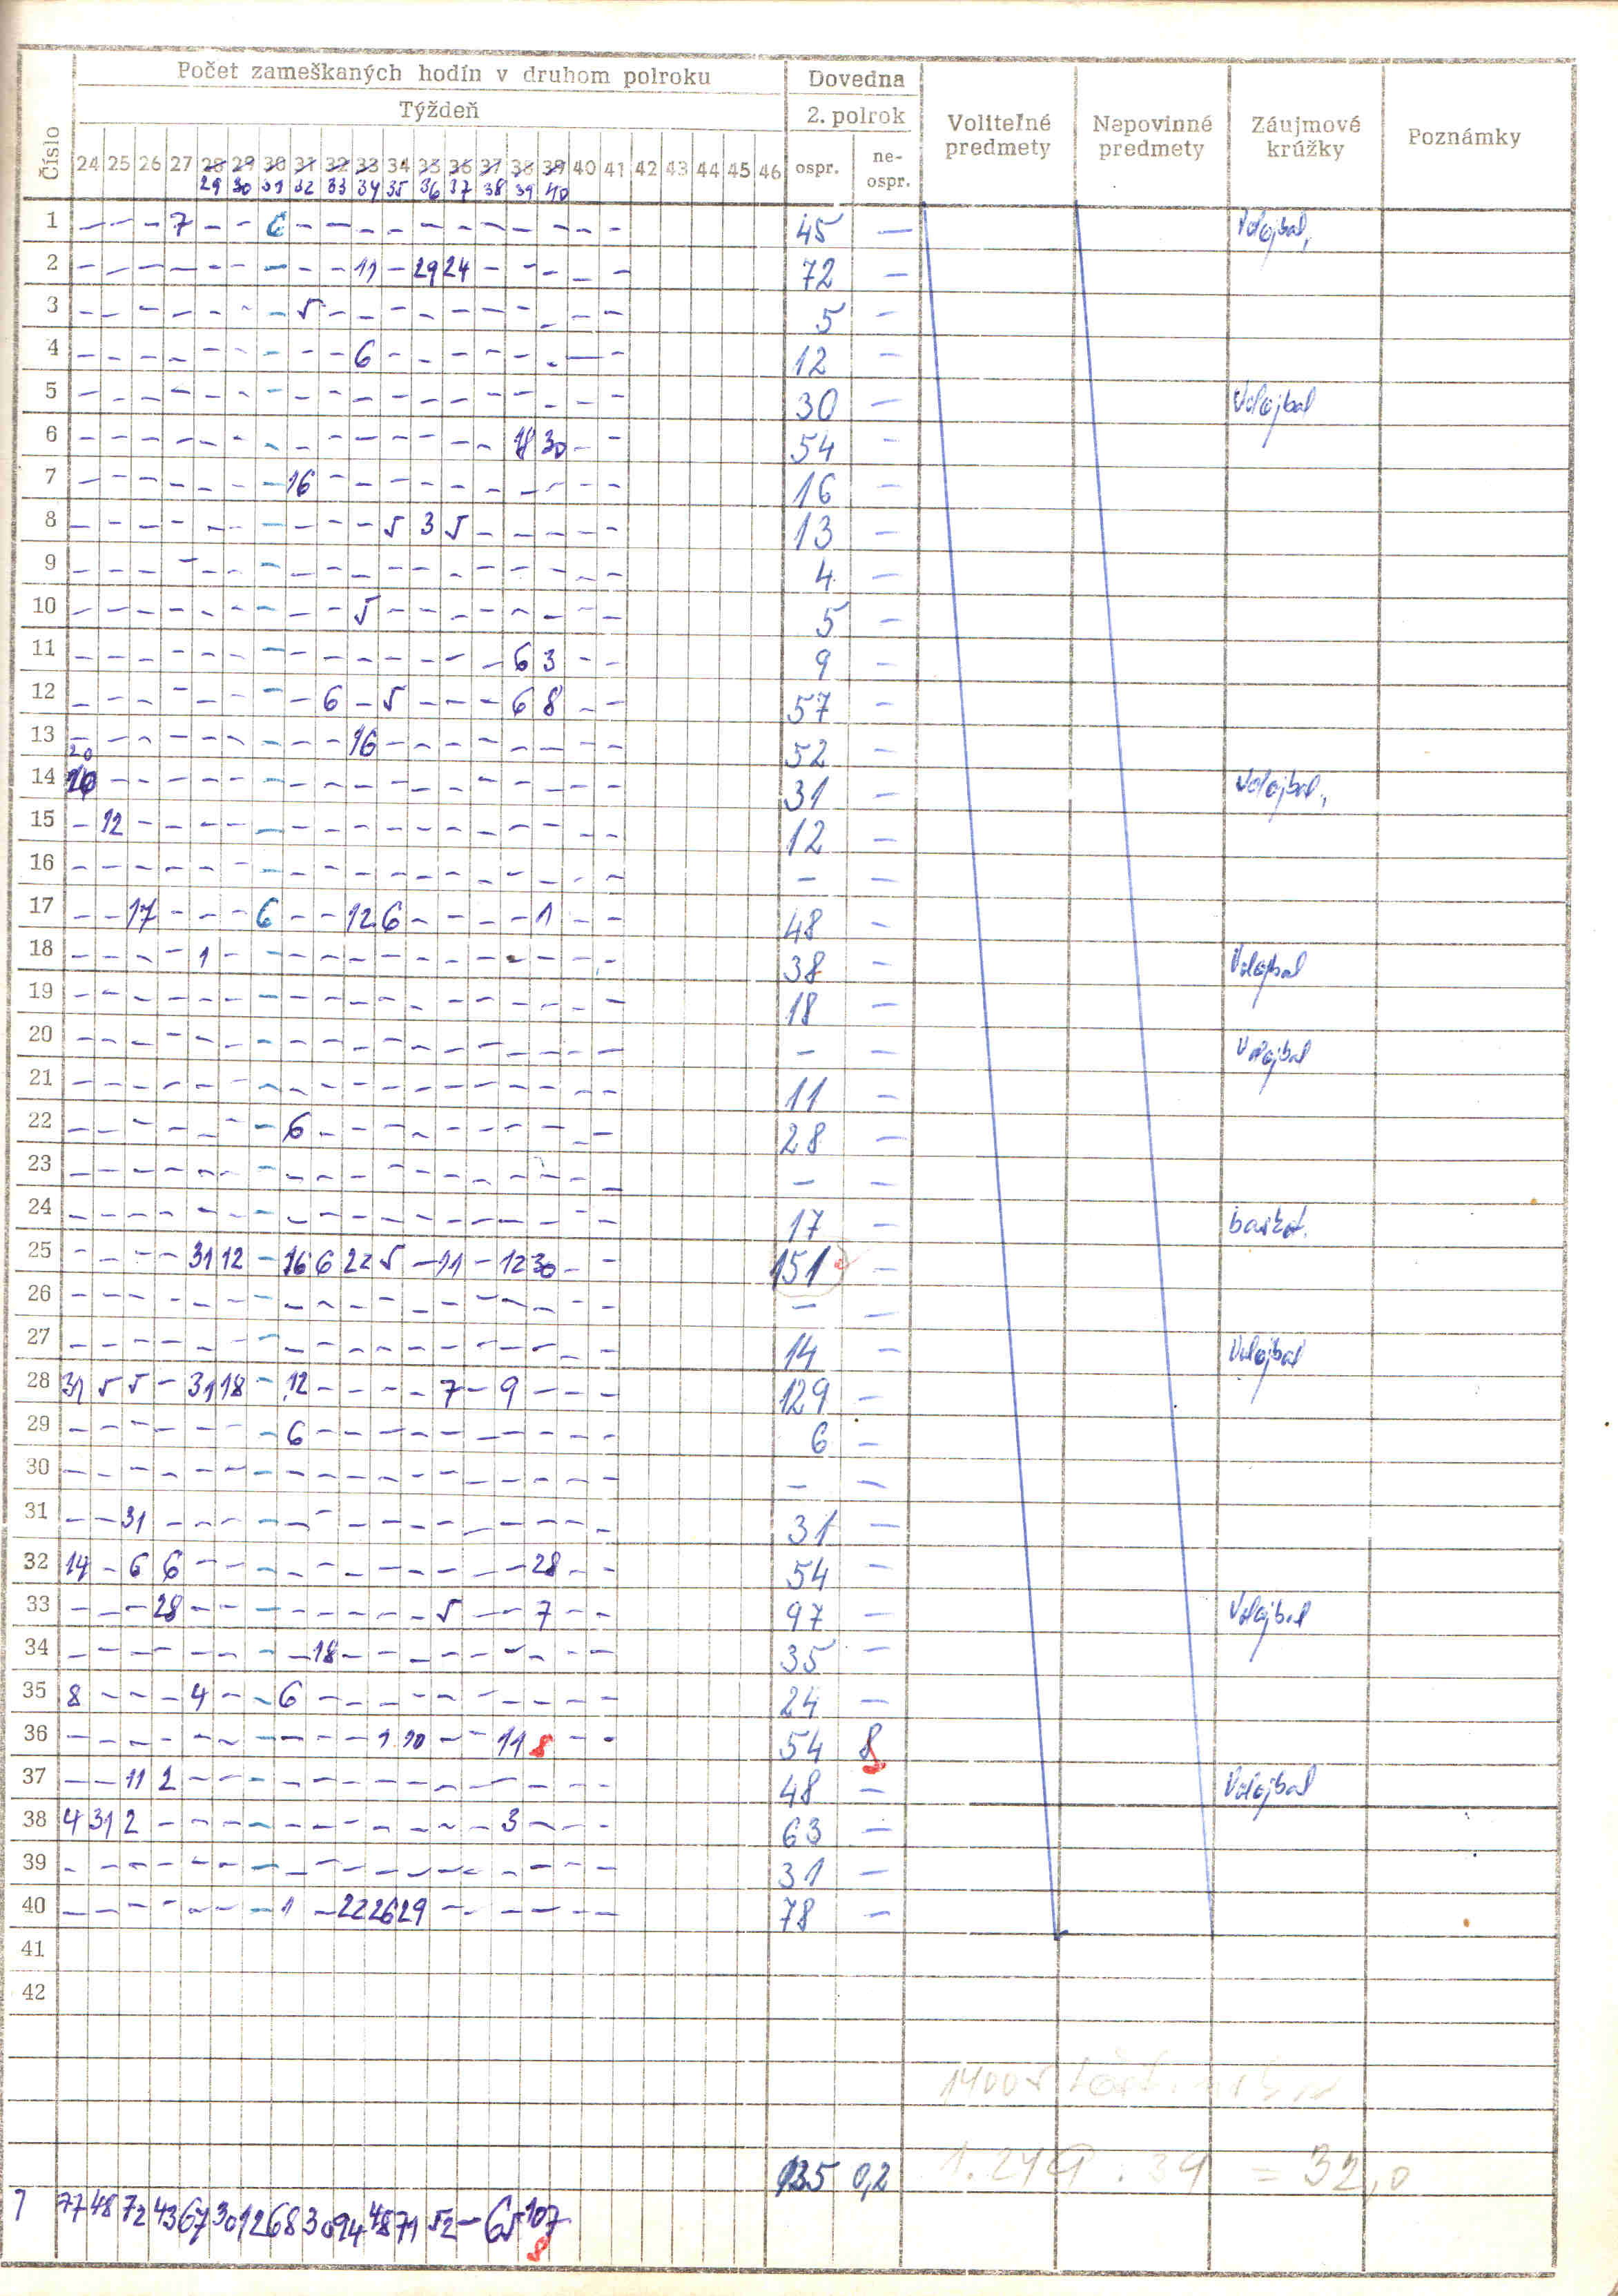 Počet zameškaných hodín v druhom polroku
Dovedna
Týždeň
2. polrok
Voliteľné predmety
Nepovinné predmety
Záujmové krúžky
Poznámky
Číslo
24 25 26 27 28 29 30 31 32 33 34 35 36 37 38 39 40 41 42 43 44 45 46 ospr. ne-ospr.
29 30 31 32 33 34 35 36 37 38 39 40
1 - - - 7 - - 6 - - - - - - - - - - - 45 - Volejbal,
2 - - - - - - - - - 11 - 29 24 - - - - - 72 -
3 - - - - - - - 5 - - - - - - - - - - 5 -
4 - - - - - - - - - 6 - - - - - - - - 12 -
5 - - - - - - - - - - - - - - - - - - 30 - Volejbal
6 - - - - - - - - - - - - - - 18 30 - - 54 -
7 - - - - - - - 16 - - - - - - - - - - 16 -
8 - - - - - - - - - - 5 3 5 - - - - - 13 -
9 - - - - - - - - - - - - - - - - - - 4 -
10 - - - - - - - - - 5 - - - - - - - - 5 -
11 - - - - - - - - - - - - - - 6 3 - - 9 -
12 - - - - - - - - 6 - 5 - - - 6 8 - - 57 -
13 - - - - - - - - - 16 - - - - - - - - 52 -
14 20 - - - - - - - - - - - - - - - - - 31 - Volejbal,
15 - 12 - - - - - - - - - - - - - - - - 12 -
16 - - - - - - - - - - - - - - - - - - - -
17 - - 17 - - - 6 - - 12 6 - - - - 1 - - 48 -
18 - - - - 1 - - - - - - - - - - - - - 38 - Volejbal
19 - - - - - - - - - - - - - - - - - - 18 -
20 - - - - - - - - - - - - - - - - - - - - Volejbal
21 - - - - - - - - - - - - - - - - - - 11 -
22 - - - - - - - 6 - - - - - - - - - - 28 -
23 - - - - - - - - - - - - - - - - - - - -
24 - - - - - - - - - - - - - - - - - - 17 - basket.
25 - - - - 31 12 - 16 6 22 5 - 11 - 12 30 - - 151 -
26 - - - - - - - - - - - - - - - - - - - -
27 - - - - - - - - - - - - - - - - - - 14 - Volejbal
28 31 5 5 - 31 18 - 12 - - - - 7 - 9 - - - 129 -
29 - - - - - - - 6 - - - - - - - - - - 6 -
30 - - - - - - - - - - - - - - - - - - - -
31 - - 31 - - - - - - - - - - - - - - - 31 -
32 14 - 6 6 - - - - - - - - - - - 28 - - 54 -
33 - - - 28 - - - - - - - - 5 - - 7 - - 97 - Volejbal
34 - - - - - - - - 18 - - - - - - - - - 35 -
35 8 - - - 4 - - 6 - - - - - - - - - - 24 -
36 - - - - - - - - - - 1 10 - - 11 8 - - 54 8
37 - - 11 2 - - - - - - - - - - - - - - 48 - Volejbal
38 4 31 2 - - - - - - - - - - - 3 - - - 63 -
39 - - - - - - - - - - - - - - - - - - 31 -
40 - - - - - - - 1 - 22 26 29 - - - - - - 78 -
41
42
1.249 : 39 = 32,0
0,2
77 48 72 43 67 30 12 68 30 94 48 71 52 - 65 107
8